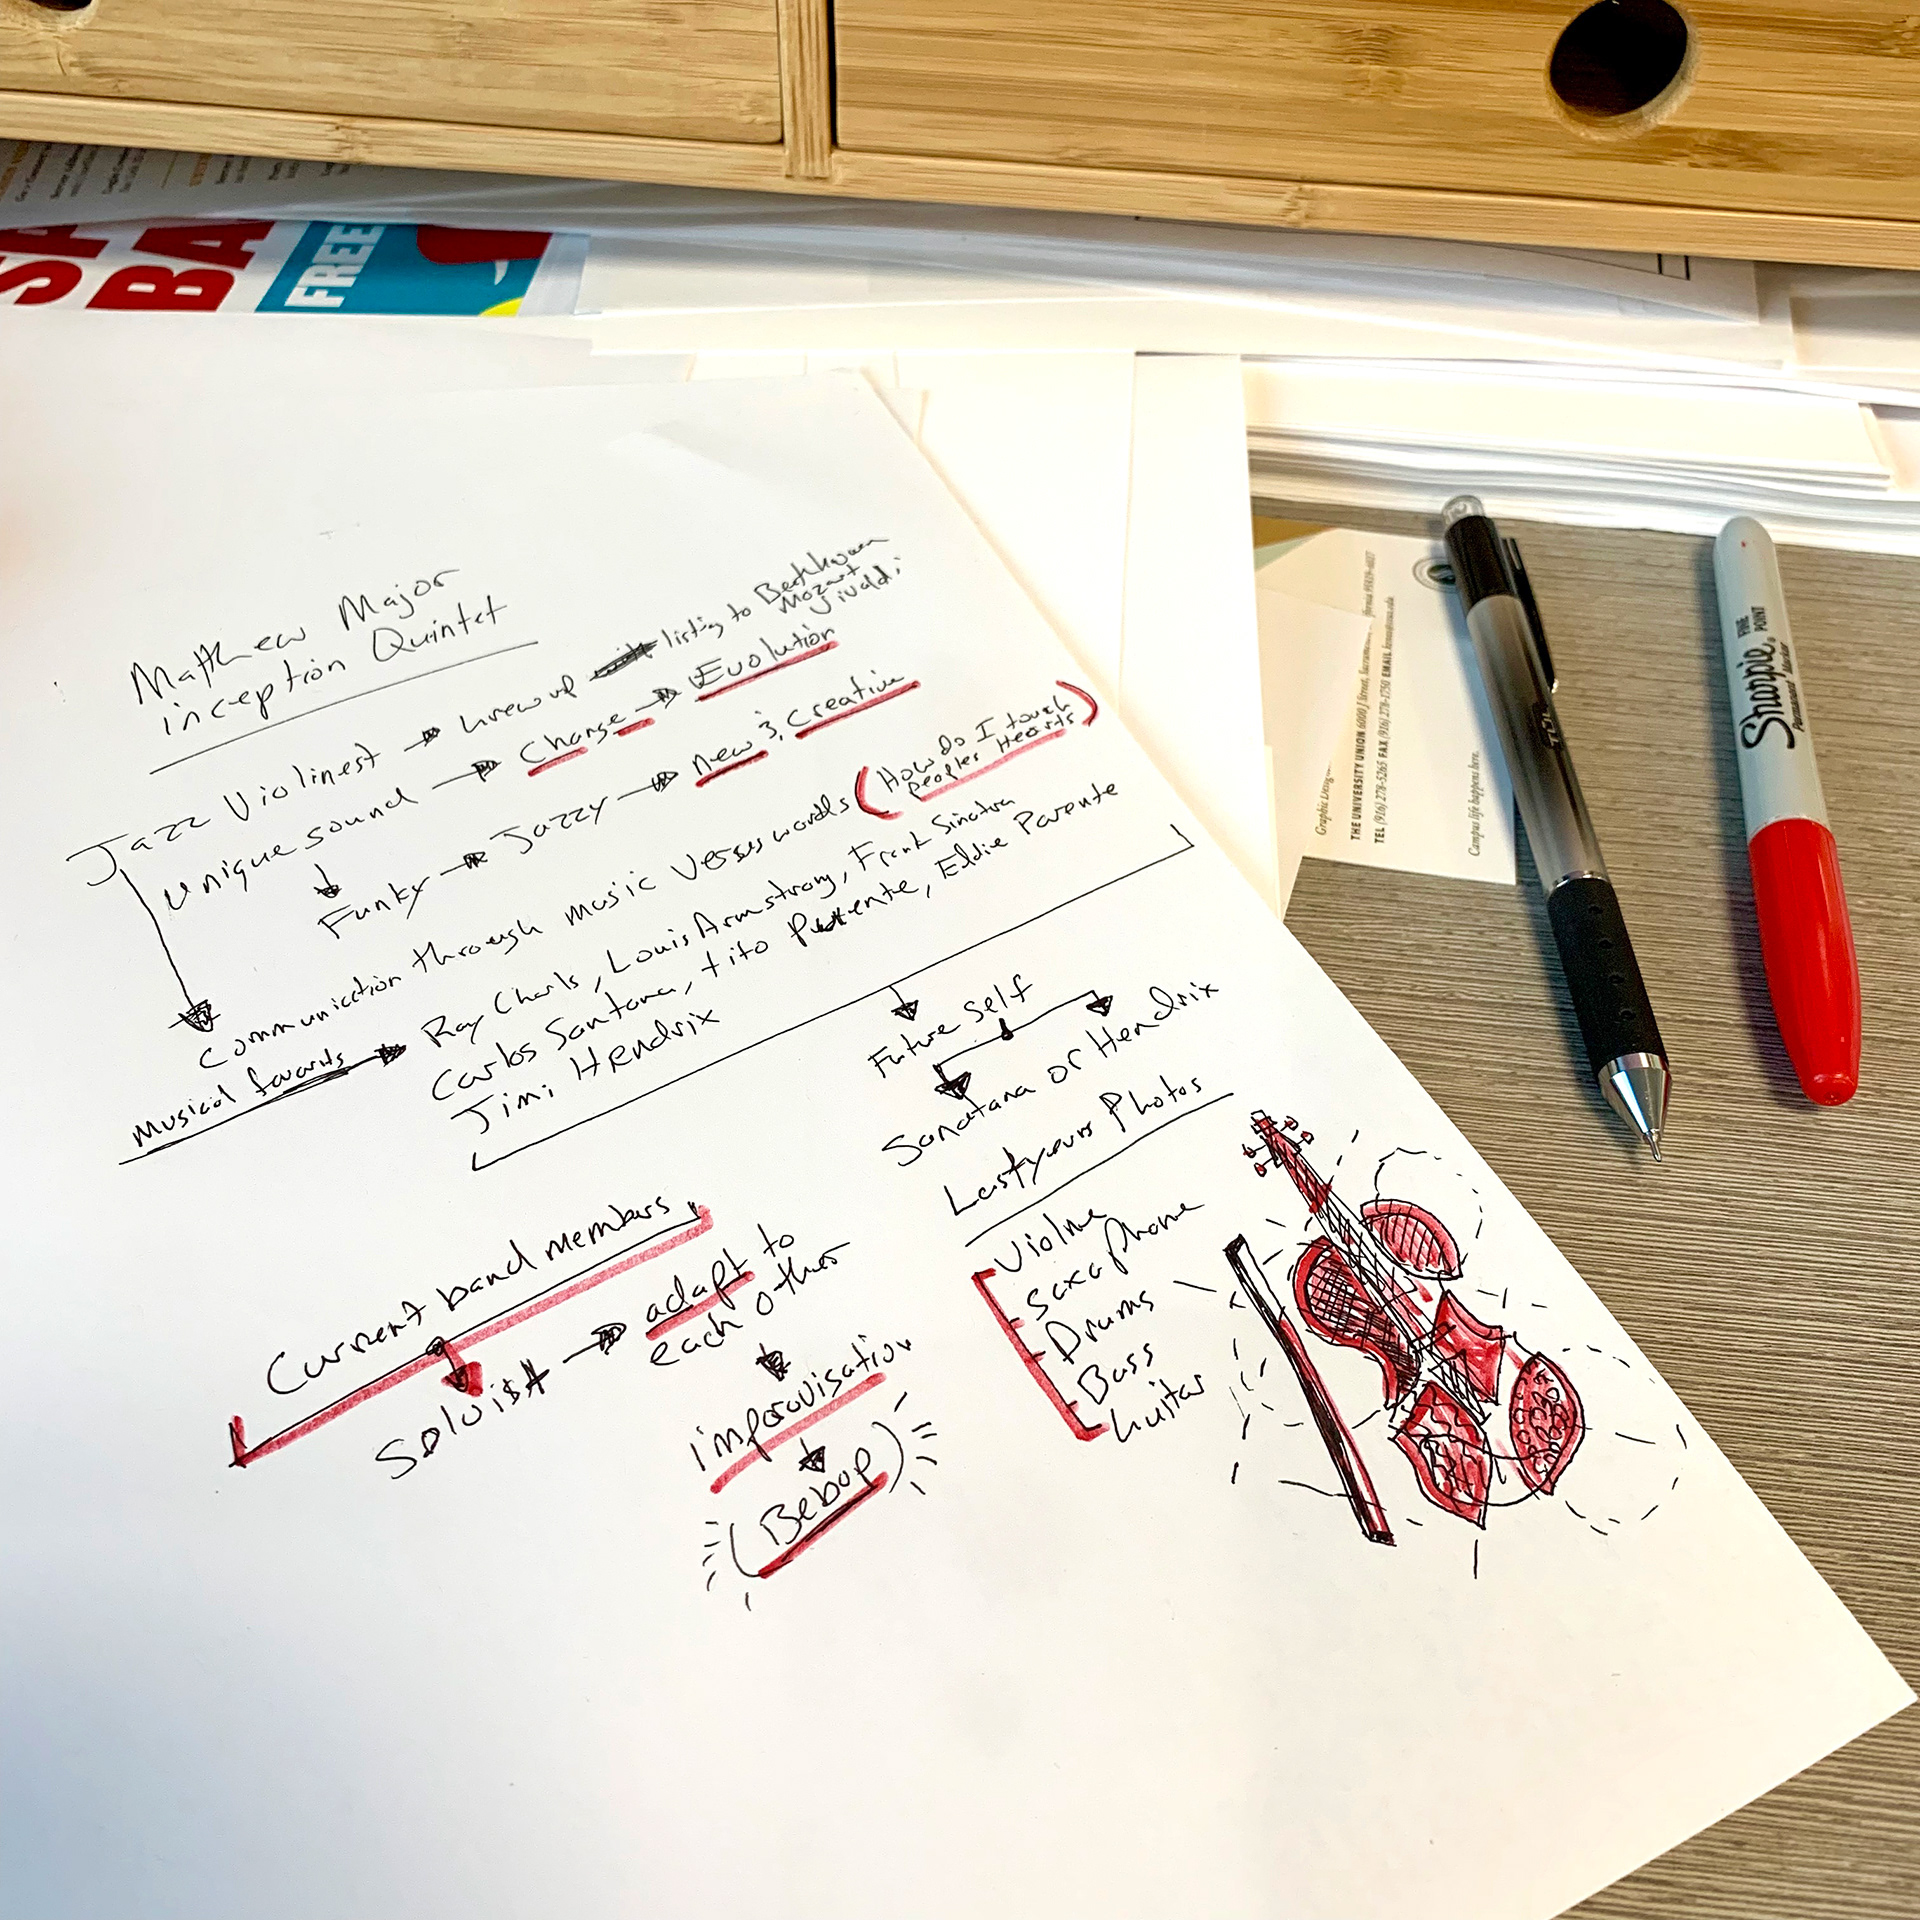 SA
BA
FREE
Matthew Major
inception Quintet
Jazz Violinest → Grew up listing to Beethoven
Mozart
Vivaldi
unique sound → Change → Evolution
Funky → Jazzy → New & Creative
Communication through music Versus words (How do I touch
peoples Hearts)
musical favorits → Ray Charls, Louis Armstrong, Frank Sinatra
Carlos Santana, tito Puente, Eddie Parente
Jimi Hendrix
Future Self
Sanatana or Hendrix
Current band members
Soloist → adapt to
each other
improvisation
(Bebop)
Lastyears Photos
Violine
Saxaphone
Drums
Bass
Guitar
Graphic Design
THE UNIVERSITY UNION 6000 J Street, Sacramento, California 95819-6017
TEL (916) 278-5265 FAX (916) 278-1750 EMAIL
Campus life happens here.
Sharpie
FINE POINT
Permanent Marker